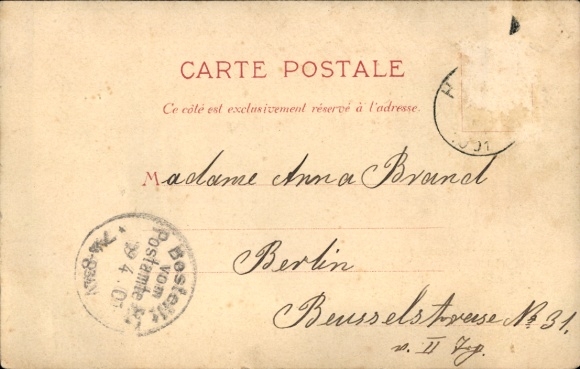 CARTE POSTALE
Ce côté est exclusivement réservé à l'adresse.
Madame Anna Brand
Berlin
Beusselstrasse No 31.
v. II
Bestellt
vom
Postamte